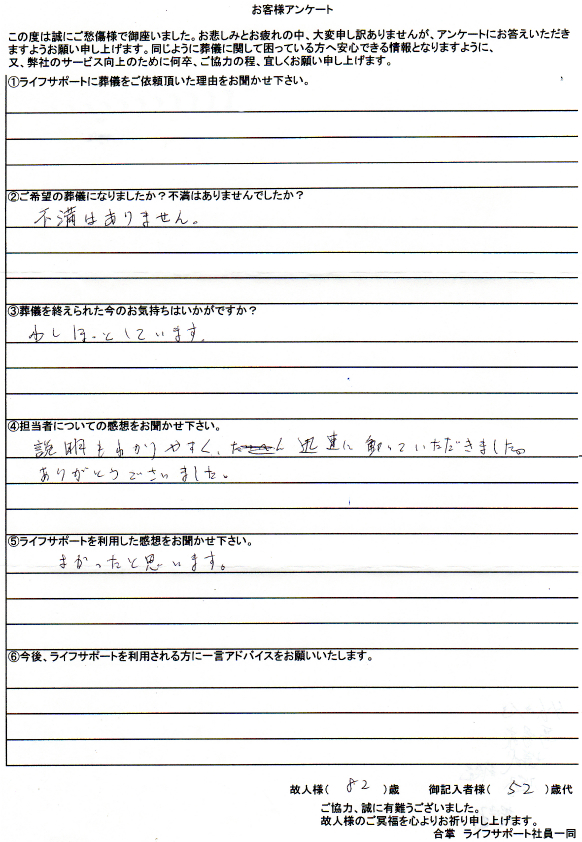 お客様アンケート
この度は誠にご愁傷様で御座いました。お悲しみとお疲れの中、大変申し訳ありませんが、アンケートにお答えいただき
ますようお願い申し上げます。同じように葬儀に関して困っている方へ安心できる情報となりますように、
又、弊社のサービス向上のために何卒、ご協力の程、宜しくお願い申し上げます。
①ライフサポートに葬儀をご依頼頂いた理由をお聞かせ下さい。
②ご希望の葬儀になりましたか？不満はありませんでしたか？
不満はありません。
③葬儀を終えられた今のお気持ちはいかがですか？
少しほっとしています。
④担当者についての感想をお聞かせ下さい。
説明もわかりやすく、迅速に動いていただきました。
ありがとうございました。
⑤ライフサポートを利用した感想をお聞かせ下さい。
よかったと思います。
⑥今後、ライフサポートを利用される方に一言アドバイスをお願いいたします。
故人様( 82 )歳 御記入者様( 52 )歳代
ご協力、誠に有難うございました。
故人様のご冥福を心よりお祈り申し上げます。
合掌 ライフサポート社員一同